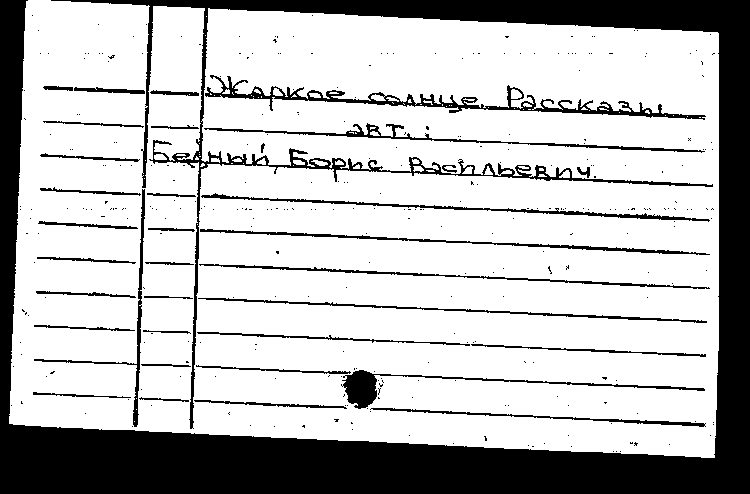 Жаркое солнце. Рассказы
авт.:
Бедный, Борис Васильевич.